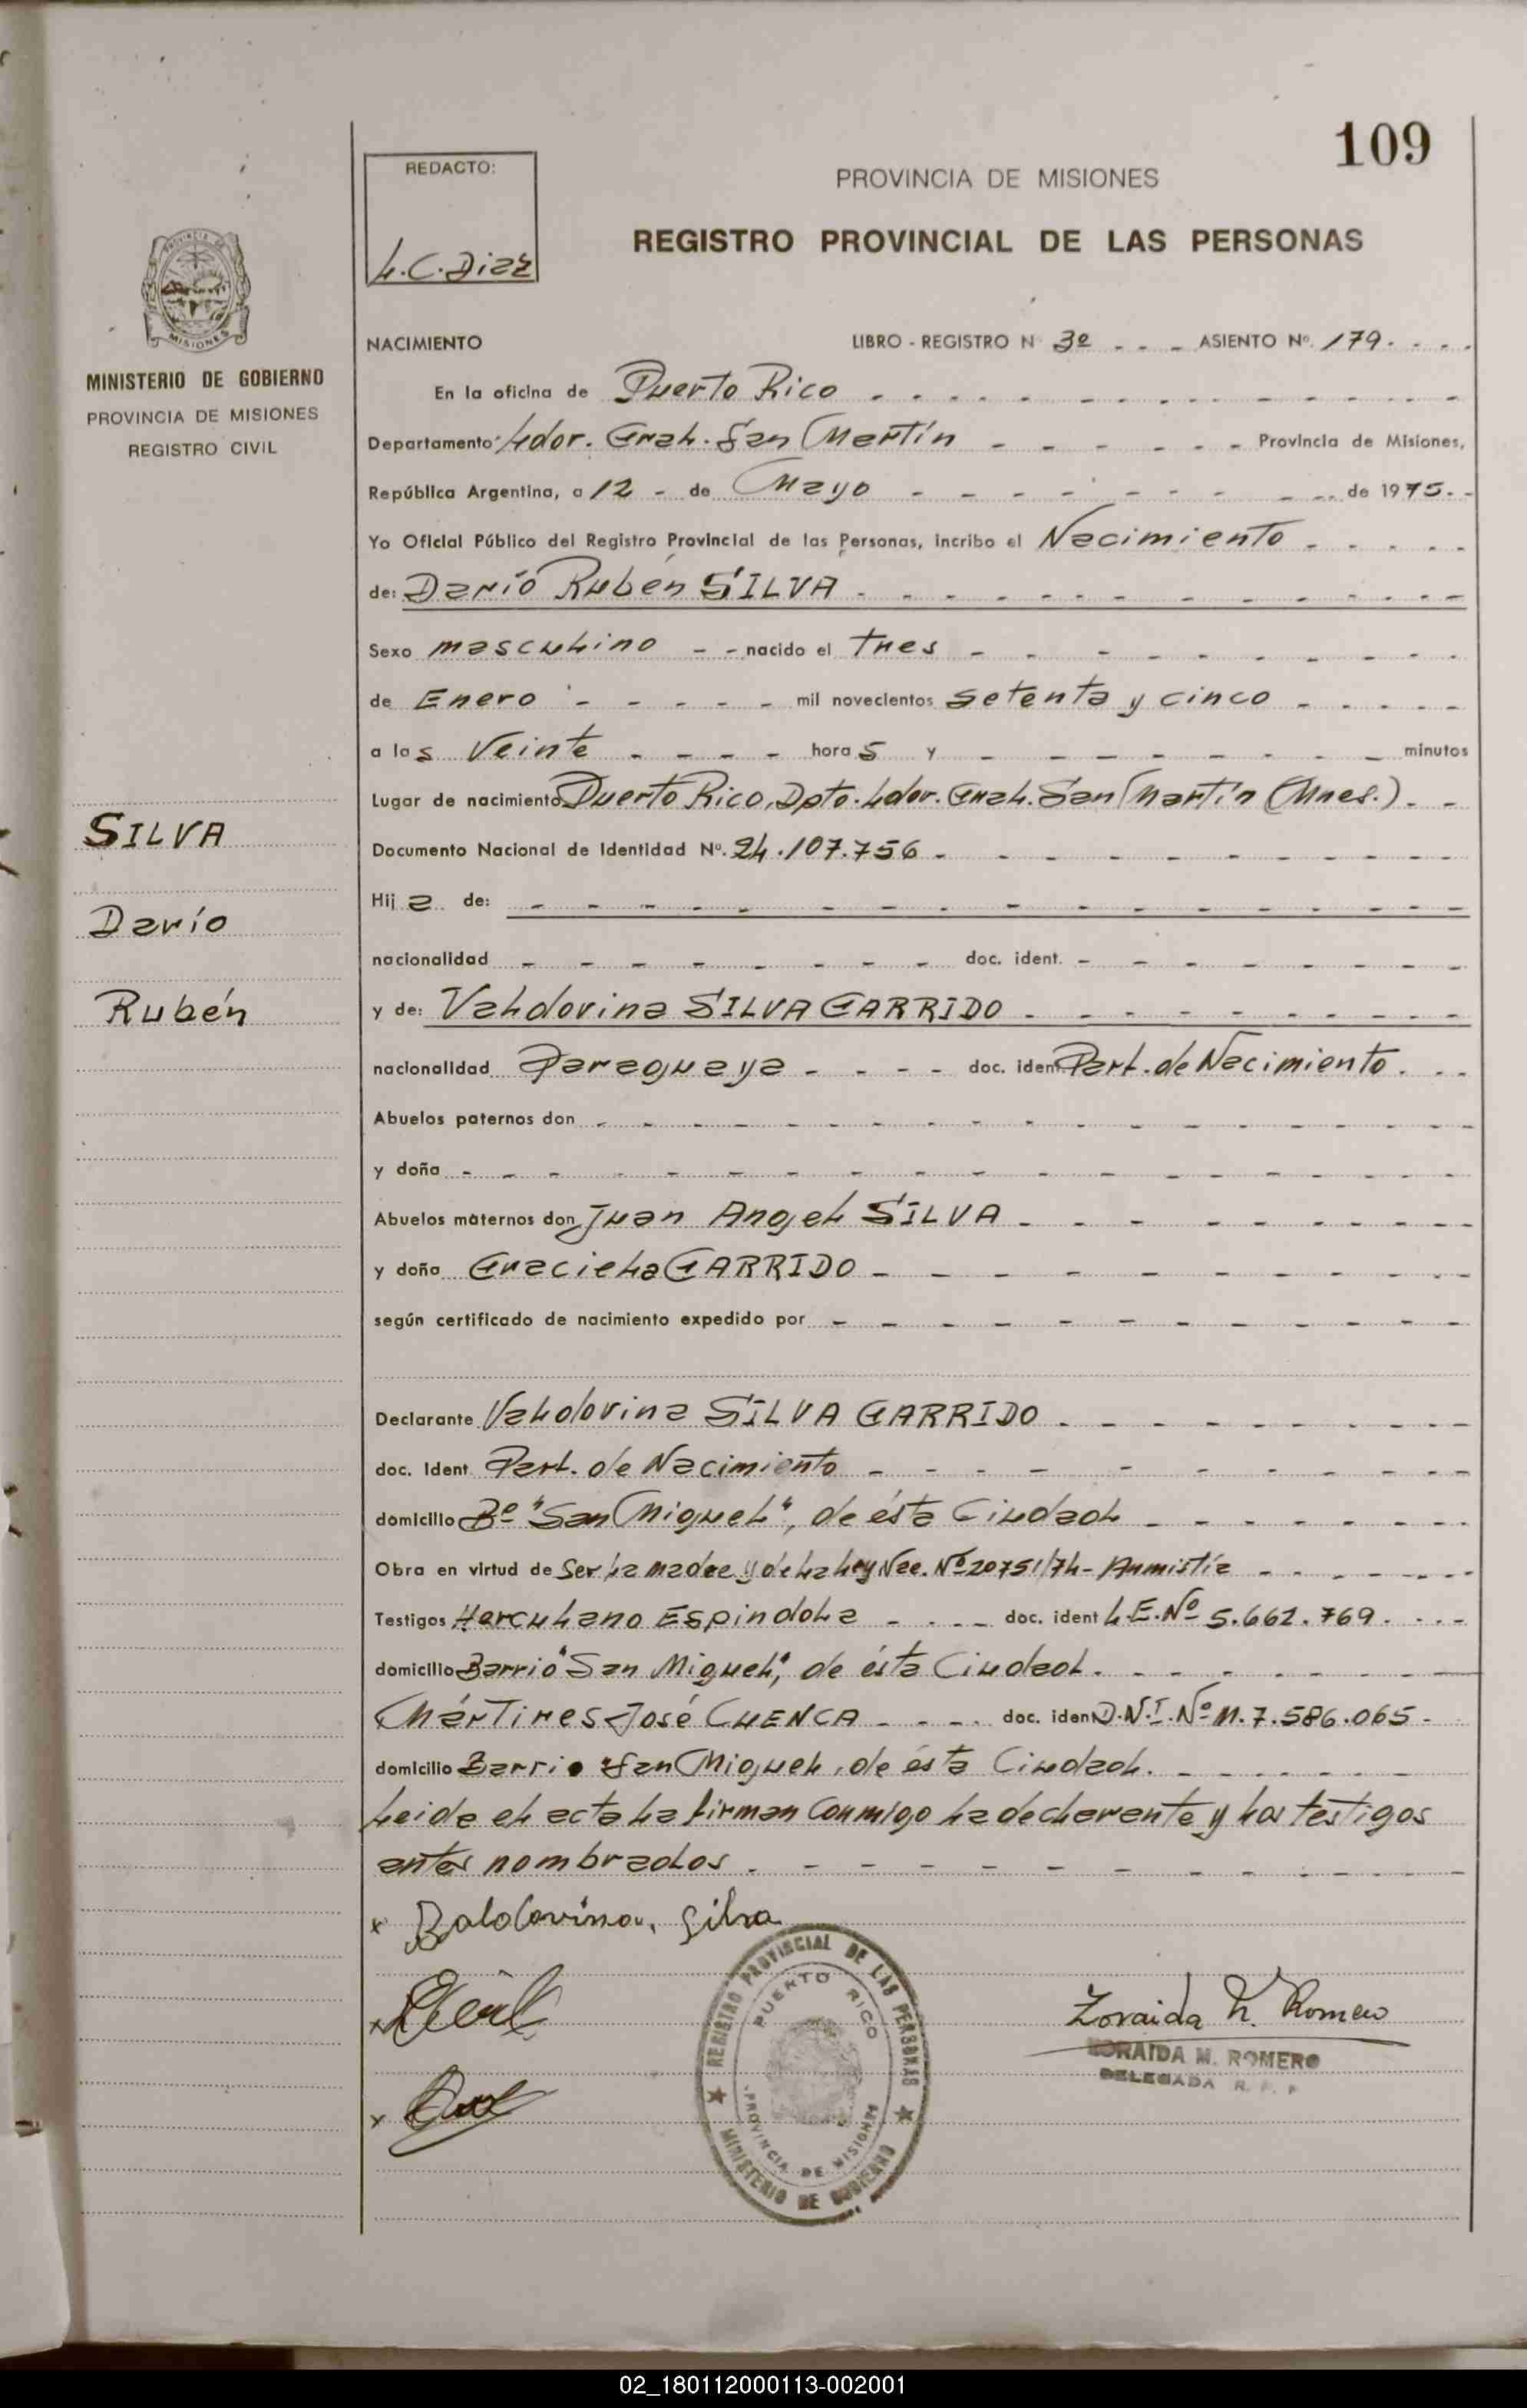 109
REDACTO:
L.C. Diaz
PROVINCIA DE MISIONES
REGISTRO PROVINCIAL DE LAS PERSONAS
MISIONES
MINISTERIO DE GOBIERNO
PROVINCIA DE MISIONES
REGISTRO CIVIL
NACIMIENTO LIBRO - REGISTRO Nº 3º - - - ASIENTO Nº. 179. - - -
En la oficina de Puerto Rico
Departamento Ldor. Gral. San Martín - - - Provincia de Misiones,
República Argentina, a 12 - de Mayo - - - de 1975. -
Yo Oficial Público del Registro Provincial de las Personas, incribo el Nacimiento
de: Darío Rubén SILVA
Sexo masculino - - nacido el tres
de Enero - - - mil novecientos setenta y cinco
a las Veinte - - - horas y - - - minutos
Lugar de nacimiento Puerto Rico, Dpto. Ldor. Gral. San Martín (Mnes.). - -
SILVA
Documento Nacional de Identidad Nº. 24.107.756 -
Hija de: - - -
Darío
nacionalidad - - - doc. ident. - - -
Rubén
y de: Valdovina SILVA GARRIDO
nacionalidad Paraguaya - - - doc. ident Part. de Nacimiento. - -
Abuelos paternos don - - -
y doña - - -
Abuelos maternos don Juan Angel SILVA
y doña Graciela GARRIDO
según certificado de nacimiento expedido por - - -
Declarante Valdovina SILVA GARRIDO
doc. Ident Part. de Nacimiento
domicilio Bº "San Miguel", de ésta Ciudad
Obra en virtud de ser la madre y de la ley Nac. Nº 20751/74 - Anmistía
Testigos Herculano Espindola - - - doc. ident L.E. Nº 5.662.769. - - -
domicilio Barrio "San Miguel", de ésta Ciudad.
Mártires José CUENCA - - - doc. iden D.N.I. Nº M. 7.586.065 -
domicilio Barrio San Miguel, de ésta Ciudad.
Leida el acta la firman conmigo la declarante y los testigos
antes nombrados.
x Baldovina, Silva
x
x
REGISTRO PROVINCIAL DE LAS PERSONAS
PUERTO RICO
PROVINCIA DE MISIONES
MINISTERIO DE GOBIERNO
Zoraida M. Romero
ZORAIDA M. ROMERO
DELEGADA R. P. P.
02_180112000113-002001